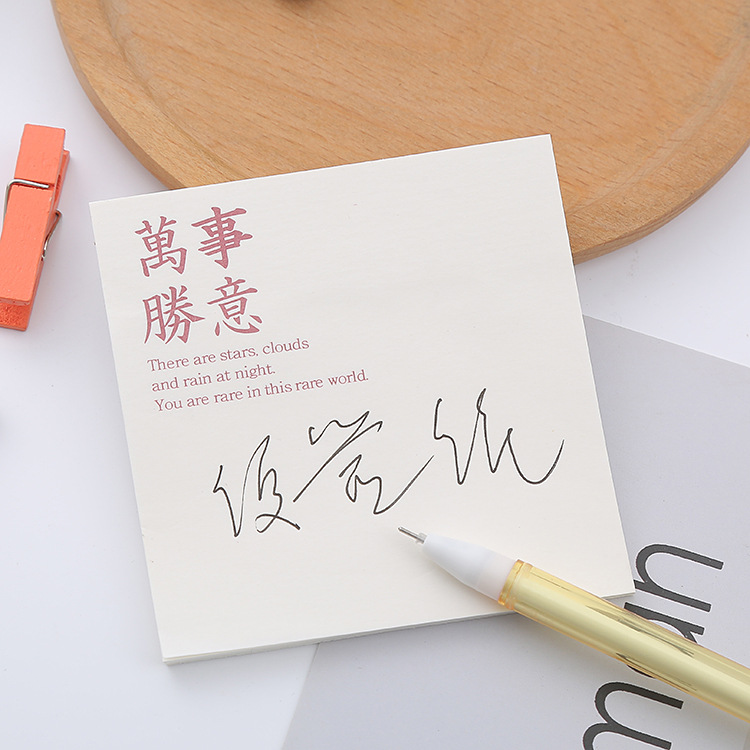 萬事
勝意
There are stars, clouds
and rain at night.
You are rare in this rare world.
纸